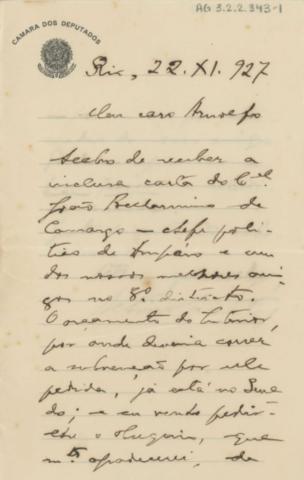 AG 3.2.2.343-1
CAMARA DOS DEPUTADOS
Rio, 22.XI.927
Meu caro Arnolfo
Acabo de receber a
inclusa carta do Cel.
João Bellarmino de
Camargo — chefe poli-
tico de Amparo e um
dos nossos melhores ami-
gos no 8º districto.
O orçamento do Interior,
por onde deveria correr
a subvenção por elle
pedida, já está no Sena-
do; e eu venho pedir-
lhe o obsequio, que
mto. agradecerei, de